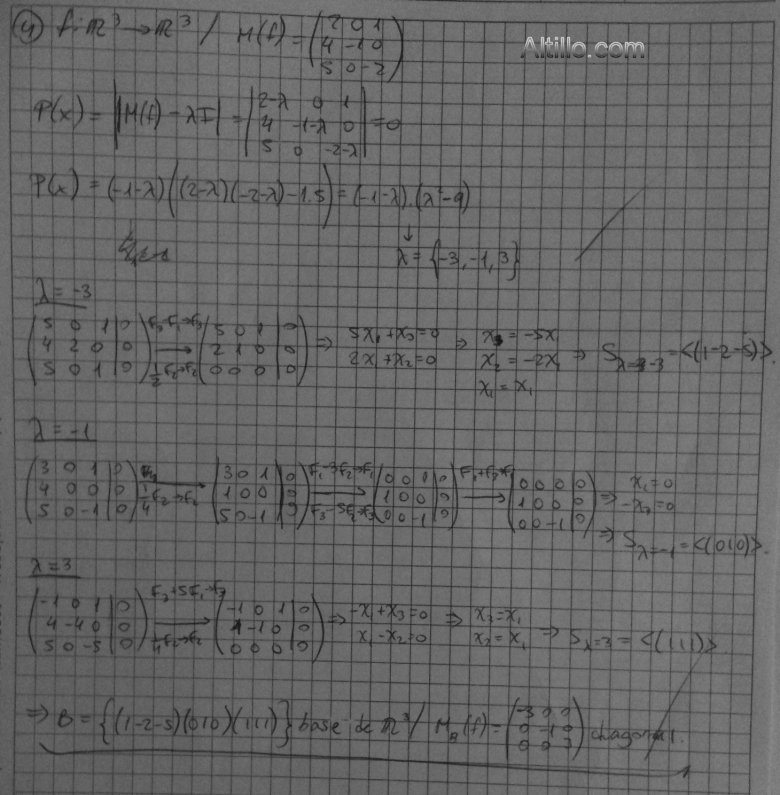 ④ f: ℝ³ → ℝ³ / M(f) = (2 0 1 / 4 -1 0 / 5 0 -2)
Altillo.com
P(x) = |M(f) - λI| = |2-λ 0 1 / 4 -1-λ 0 / 5 0 -2-λ| = 0
P(x) = (-1-λ)((2-λ)(-2-λ)-1.5) = (-1-λ).(λ²-9)
↓
λ = {-3, -1, 3}
λ = -3
(5 0 1 | 0 / 4 2 0 | 0 / 5 0 1 | 0) F₃-F₁→F₃ ½F₂→F₂ (5 0 1 | 0 / 2 1 0 | 0 / 0 0 0 | 0) ⇒ 5x₁+x₃=0 / 2x₁+x₂=0 ⇒ x₃ = -5x₁ / x₂ = -2x₁ / x₁ = x₁ ⇒ S λ=-3 = <(1 -2 -5)>.
λ = -1
(3 0 1 | 0 / 4 0 0 | 0 / 5 0 -1 | 0) ¼F₂→F₂ (3 0 1 | 0 / 1 0 0 | 0 / 5 0 -1 | 0) F₁-3F₂→F₁ F₃-5F₂→F₃ (0 0 1 | 0 / 1 0 0 | 0 / 0 0 -1 | 0) F₁+F₃→F₁ (0 0 0 | 0 / 1 0 0 | 0 / 0 0 -1 | 0) ⇒ x₁=0 / -x₃=0
⇒ S λ=-1 = <(0 1 0)>.
λ = 3
(-1 0 1 | 0 / 4 -4 0 | 0 / 5 0 -5 | 0) F₃+5F₁→F₃ ¼F₂→F₂ (-1 0 1 | 0 / 1 -1 0 | 0 / 0 0 0 | 0) ⇒ -x₁+x₃=0 / x₁-x₂=0 ⇒ x₃=x₁ / x₂=x₁ ⇒ S λ=3 = <(1 1 1)>
⇒ B = {(1 -2 -5)(0 1 0)(1 1 1)} base de ℝ³ / M_B(f) = (-3 0 0 / 0 -1 0 / 0 0 3) diagonal.